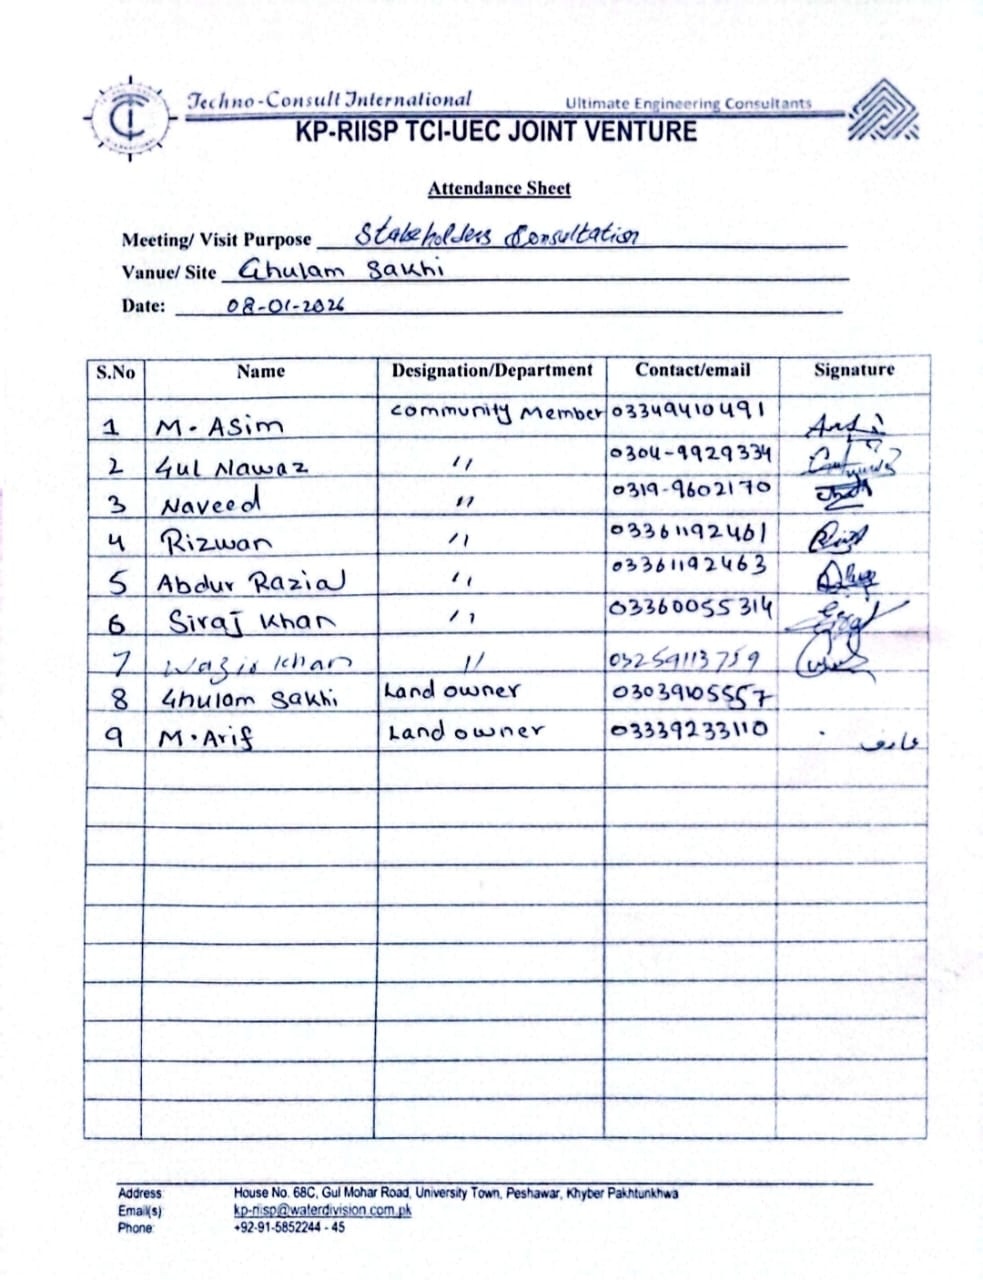 Techno-Consult International Ultimate Engineering Consultants
KP-RIISP TCI-UEC JOINT VENTURE
Attendance Sheet
Meeting/ Visit Purpose Stakeholders Consultation
Vanue/ Site Ghulam Sakhi
Date: 08-01-2026
S.No Name Designation/Department Contact/email Signature
1 M. Asim Community Member 03349410491
2 Gul Nawaz 〃 0304-9929334
3 Naveed 〃 0319-9602170
4 Rizwan 〃 03361192461
5 Abdur Razial 〃 03361192463
6 Siraj Khan 〃 03360055314
7 Wazir Khan 〃 03259113759
8 Ghulam Sakhi Land owner 03039105557
9 M. Arif Land owner 03339233110 عارف
Address: House No. 68C, Gul Mohar Road, University Town, Peshawar, Khyber Pakhtunkhwa
Email(s): kp-riisp@waterdivision.com.pk
Phone: +92-91-5852244 - 45